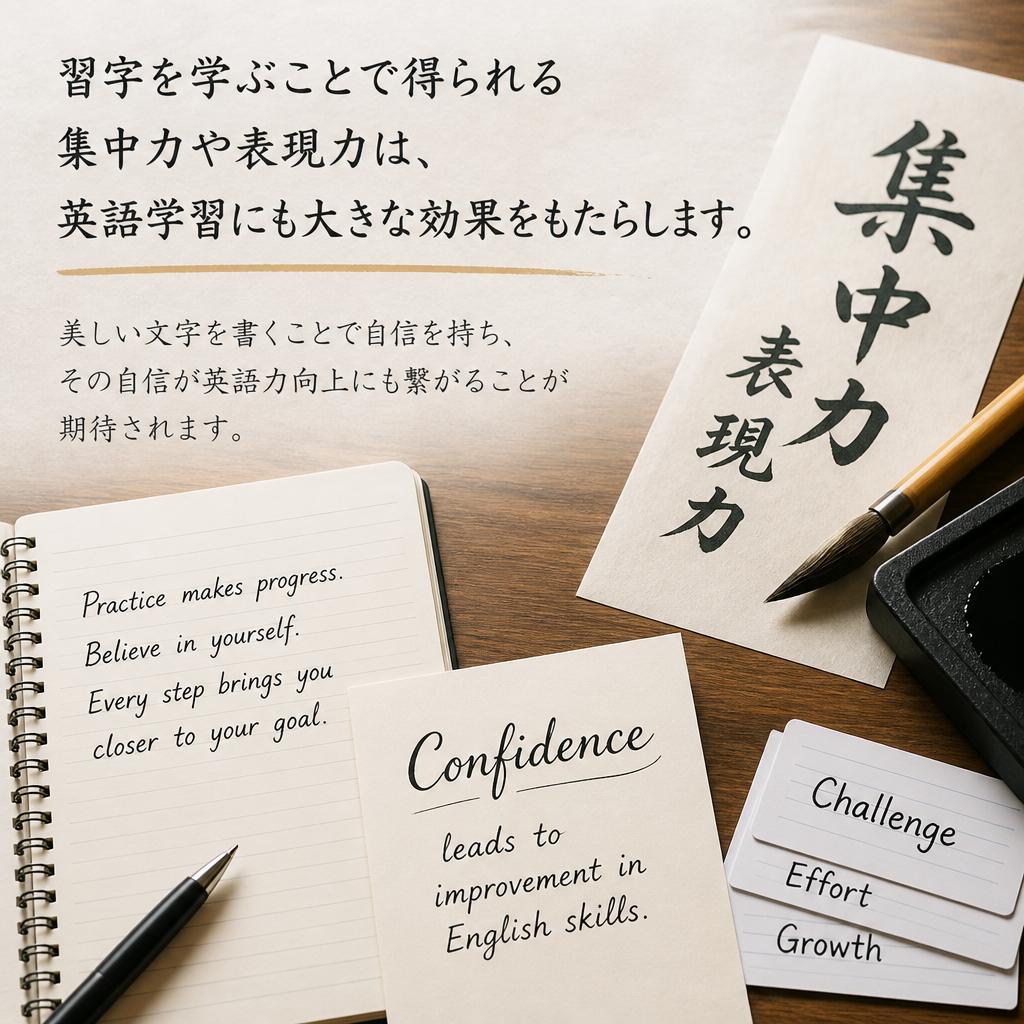 習字を学ぶことで得られる
集中力や表現力は、
英語学習にも大きな効果をもたらします。
美しい文字を書くことで自信を持ち、
その自信が英語力向上にも繋がることが
期待されます。
集中力
表現力
Practice makes progress.
Believe in yourself.
Every step brings you
closer to your goal.
Confidence
leads to
improvement in
English skills.
Challenge
Effort
Growth